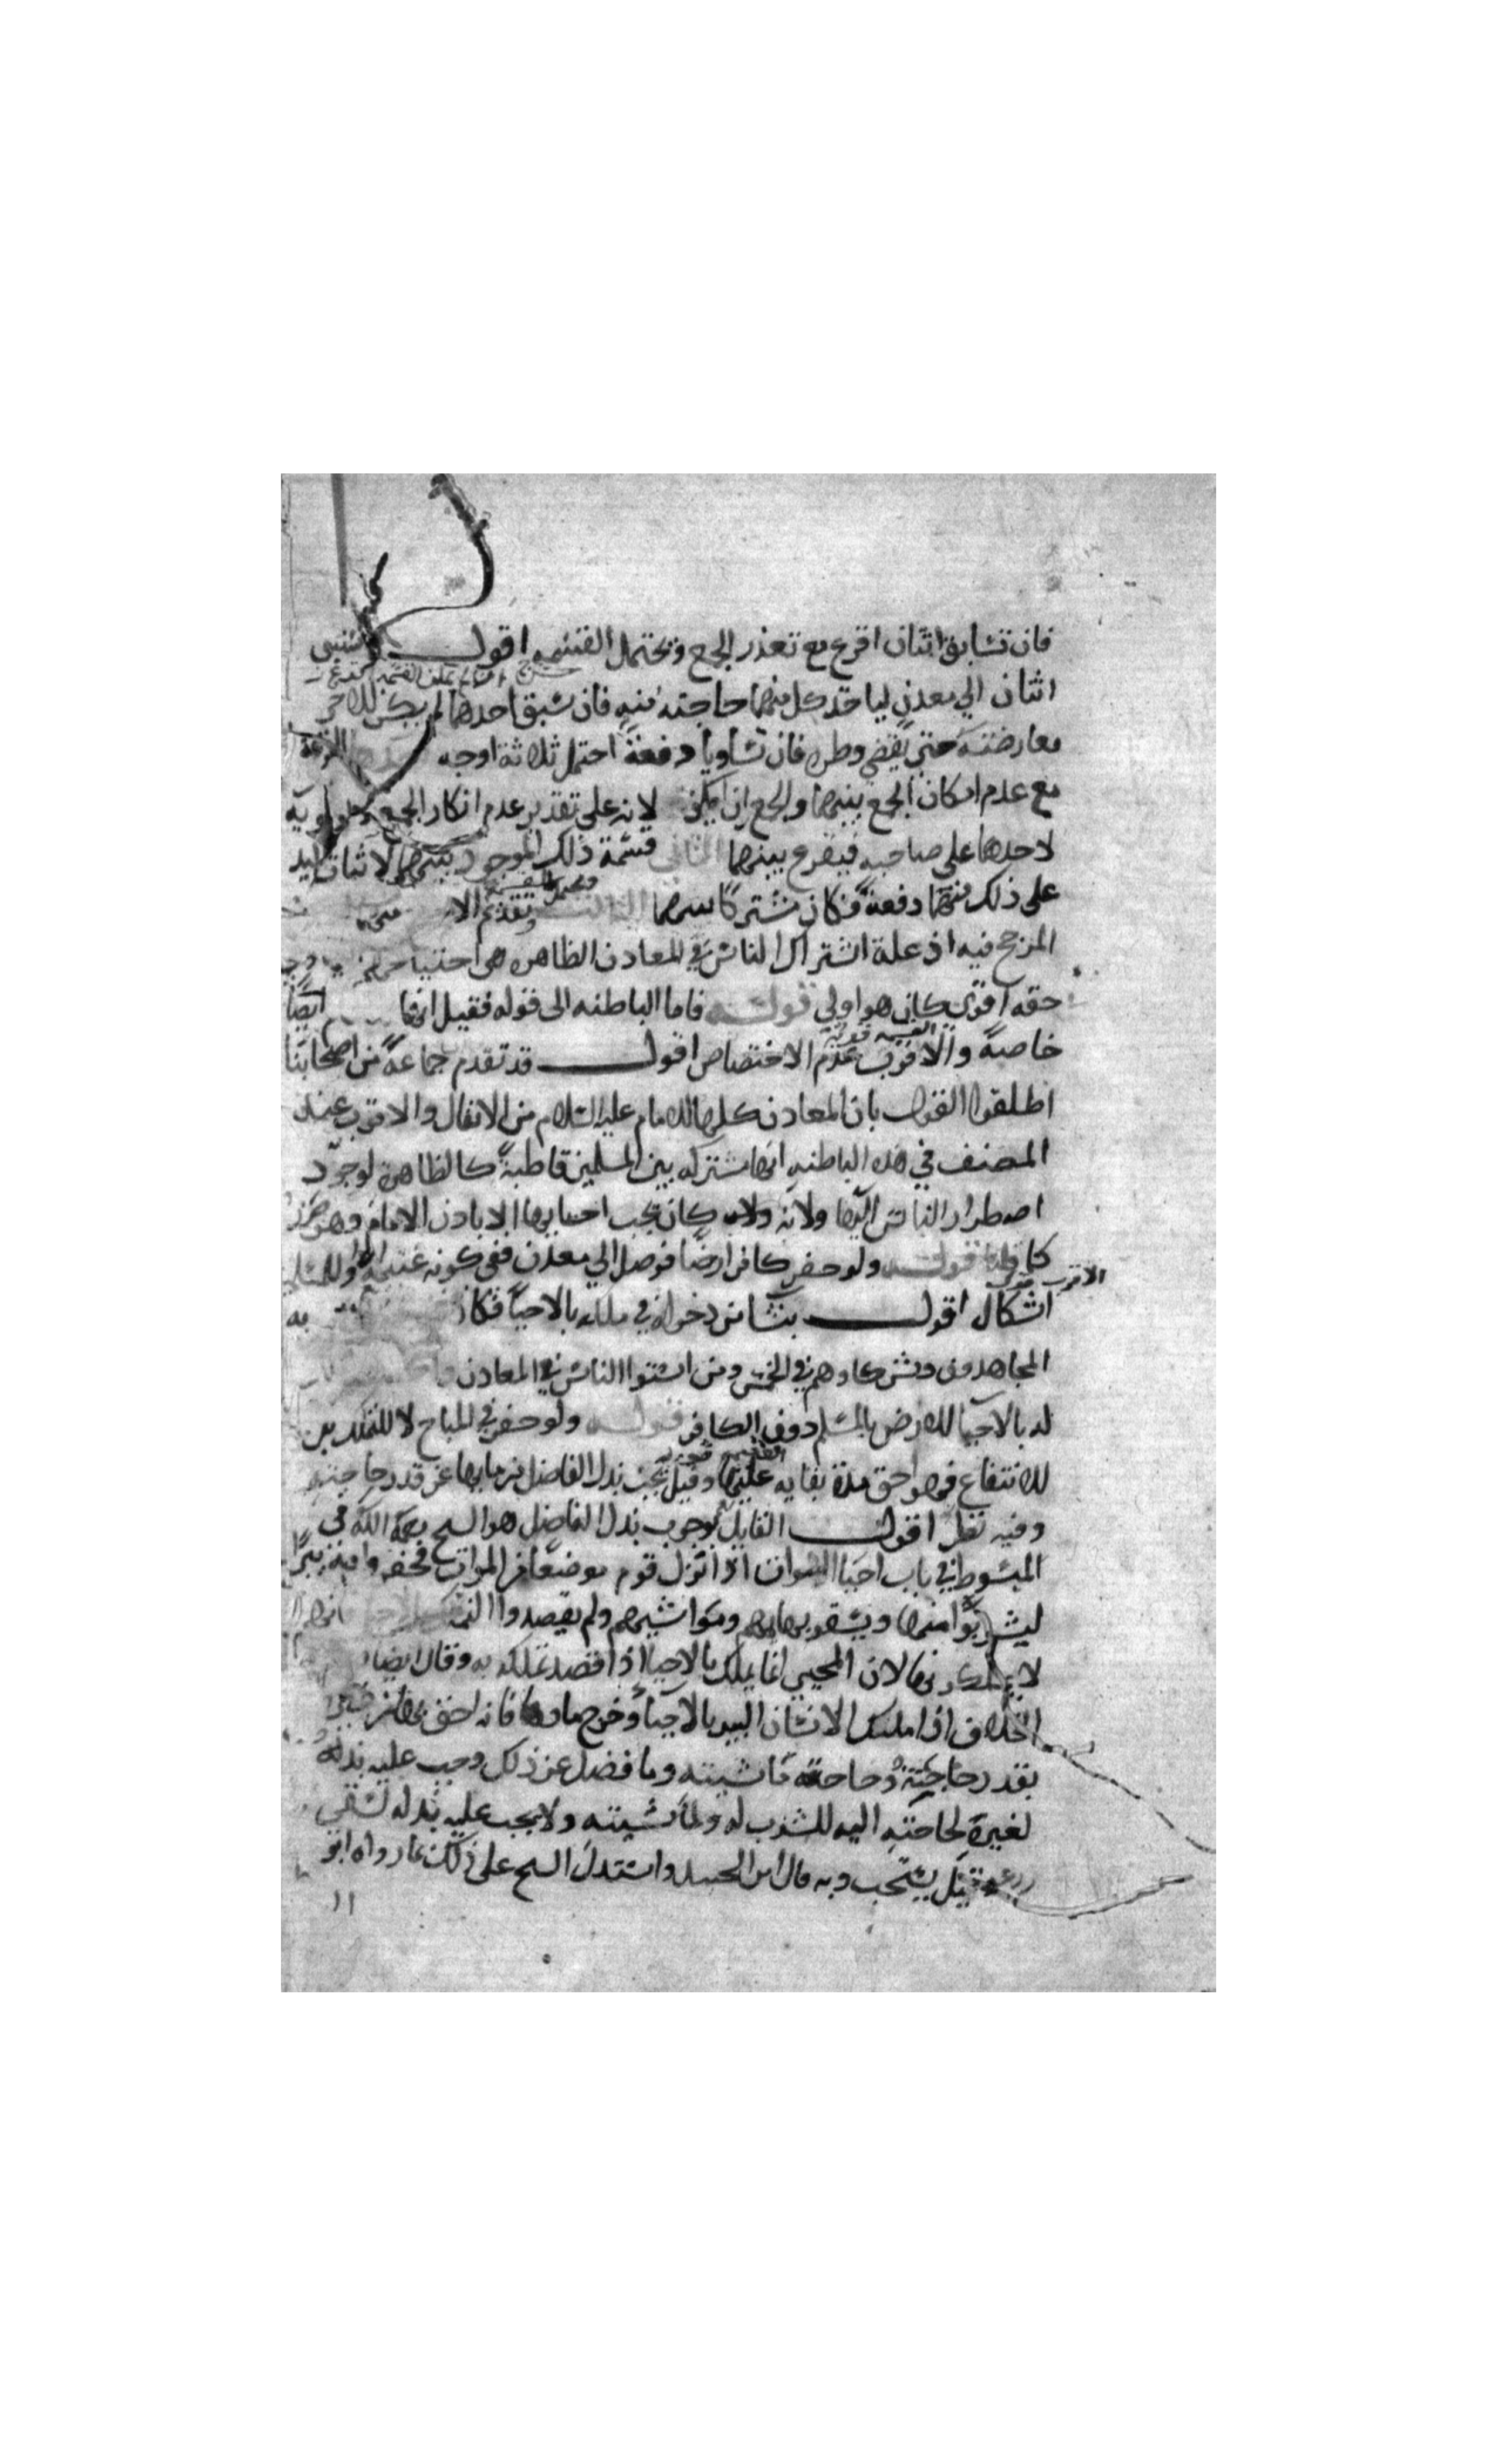 فان تسابق اثنان اقرع مع تعذر الجمع ويحتمل القسمه اقول
اثنان الي معدن لياخذ كل منهما حاجته منه فان سبق احدهما لم يكن للاخر
معارضته حتى يقضي وطره فان تساويا دفعة احتمل ثلاثة اوجه القرعة
مع عدم امكان الجمع بينهما والجمع ان امكن لانه على تقدير عدم امكان الجمع اولويه
لاحدهما على صاحبه فيقرع بينهما الثاني قسمة ذلك الموجود بينهما لاثبات اليد
على ذلك منهما دفعة فكان مشتركا بينهما الثالث تقديم
المرجح فيه اذ علة اشتراك الناس في المعادن الظاهره هي احتياجهم
حقه اقوى كان هو اولى قوله فاما الباطنه الى قوله فقيل انها ايضا
خاصة والاقرب عدم الاختصاص اقول قد تقدم جماعة من اصحابنا
اطلقوا القول بان المعادن كلها للامام عليه السلام من الانفال والاقرب عند
المصنف في هذه الباطنه انها مشتركه بين المسلمين قاطبة كالظاهره لوجود
اضطرار الناس اليها ولانه كان يجب احيايها الا باذن الامام وهو
كما قلنا قوله ولو حفر كافر ارضا فوصل الي معدن ففي كونه غنيمة او للمسلمين
الاقرب
اشكال اقول ينشا من دخوله في ملكه بالاحيا فكان به
المجاهدون ومشاركوهم في الخمس ومن استوا الناس في المعادن
له بالاحيا للارض بالمسلم دون الكافر قوله ولو حفر في المباح لا للتملك بل
للانتفاع فهو احق مدة بقايه عليها وقيل يجب بذل الفاضل من مايها عن قدر حاجته
وفيه نظر اقول القايل بوجوب بذل الفاضل هو الشيخ رحمه الله في
المبسوط في باب احيا الموات اذا نزل قوم موضعا من الموات فحفروا فيه بئرا
ليشربوا منها ويسقوا بهايمهم ومواشيهم ولم يقصدوا
لا يملكونها لان المحيي انما يملك بالاحيا اذا قصد تملكه به وقال ايضا
الخلاف اذا ملك الانسان البير بالاحيا وخرج ماوها فانه احق بمائها
بقدر حاجته وحاجة ماشيته وما فضل عن ذلك وجب عليه بذله
لغيره لحاجته اليه للشرب له ولماشيته ولا يجب عليه بذله لسقي
زرعه بل يستحب وبه قال ابن الجنيد واستدل الشيخ على ذلك بما رواه ابو